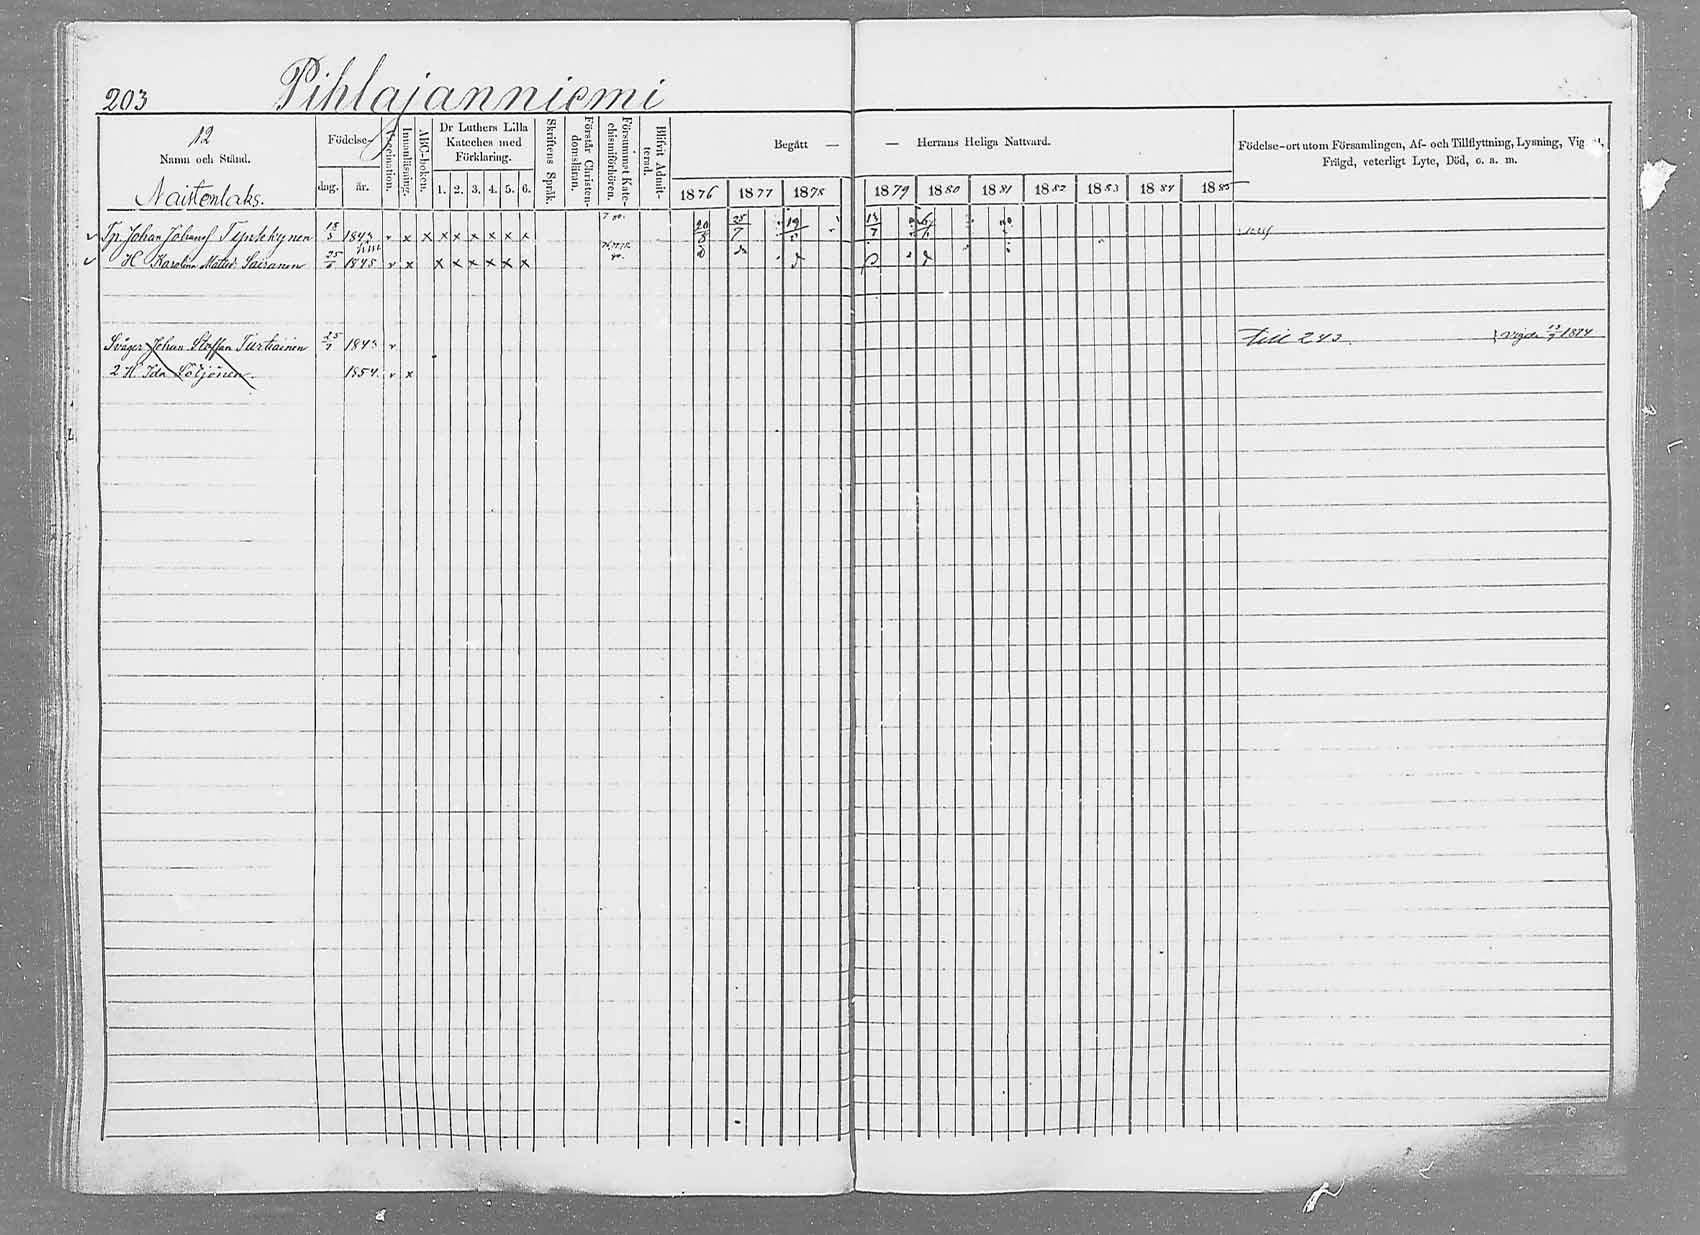 203 Pihlajanniemi
12
Namn och Stånd.
Naistenlaks.
Födelse-
dag. år.
Vaccination.
Innanläsning.
ABC-boken.
Dr Luthers Lilla
Kateches med
Förklaring.
1. 2. 3. 4. 5. 6.
Skriftens Språk.
Förstår Christen-
domslären.
Försummat Kate-
chismiförhören.
Blifvit Admit-
terad.
Begått — — Herrans Heliga Nattvard.
1876 1877 1878 1879 1880 1881 1882 1883 1884 1885
Födelse-ort utom Församlingen, Af- och Tillflyttning, Lysning, Vig
Frägd, veterligt Lyte, Död, o. a. m.
Johan 1843 v x x x x x x x x
H Karolina Matsd Sairanen 25 1845 v x x x x x x x
Svåger Johan Staffan Turtiainen 25/7 1843 v till 243. vigde 1874
2 H Ida 1854. v x